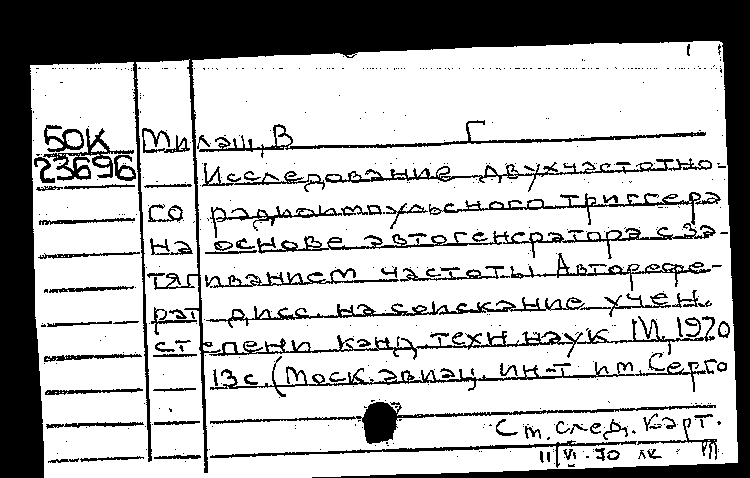 50К Милащ, В Г
23696 Исследование двухчастотно-
го радиоимпульсного триггера
на основе автогенератора с за-
тягиванием частоты. Авторефе-
рат дисс. на соискание учен.
степени канд. техн. наук М, 1970
13 с. (Моск. авиац. ин-т им. Серго
См. след. карт.
11/VI-70 лк